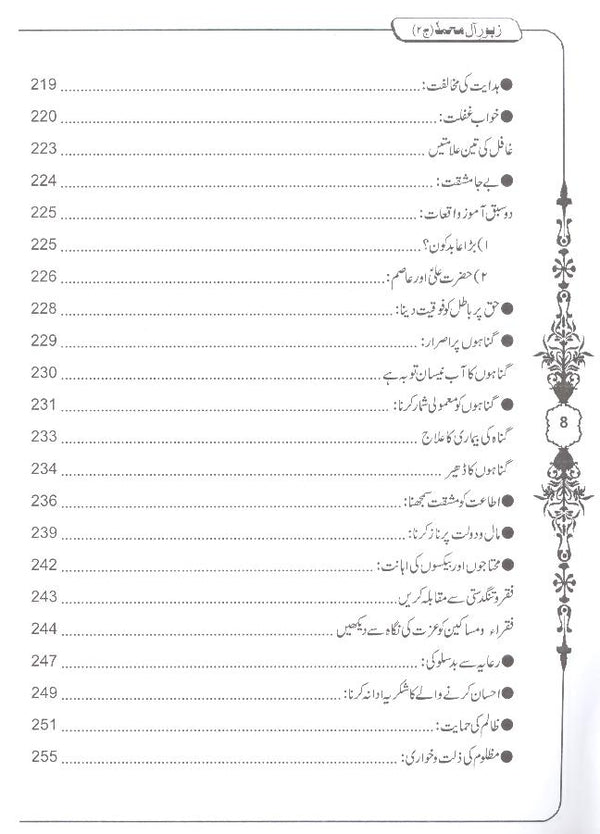 زبور آل محمدؐ (ج۲)
● ہدایت کی مخالفت: 219
● خواب غفلت: 220
غافل کی تین علامتیں 223
● بے جا مشقت: 224
دو سبق آموز واقعات: 225
۱) بڑا عابد کون؟ 225
۲) حضرت علیؑ اور عاصم: 226
● حق پر باطل کو فوقیت دینا: 228
● گناہوں پر اصرار: 229
گناہوں کا آب نیسان توبہ ہے 230
● گناہوں کو معمولی شمار کرنا: 231
گناہ کی بیماری کا علاج 233
گناہوں کا ڈھیر 234
● اطاعت کو مشقت سمجھنا: 236
● مال و دولت پر ناز کرنا: 239
● محتاجوں اور بیکسوں کی اہانت: 242
فقر و تنگدستی سے مقابلہ کریں 243
فقراء و مساکین کو عزت کی نگاہ سے دیکھیں 244
● رعایہ سے بدسلوکی: 247
● احسان کرنے والے کا شکریہ ادا نہ کرنا: 249
● ظالم کی حمایت: 251
● مظلوم کی ذلت و خواری: 255
8